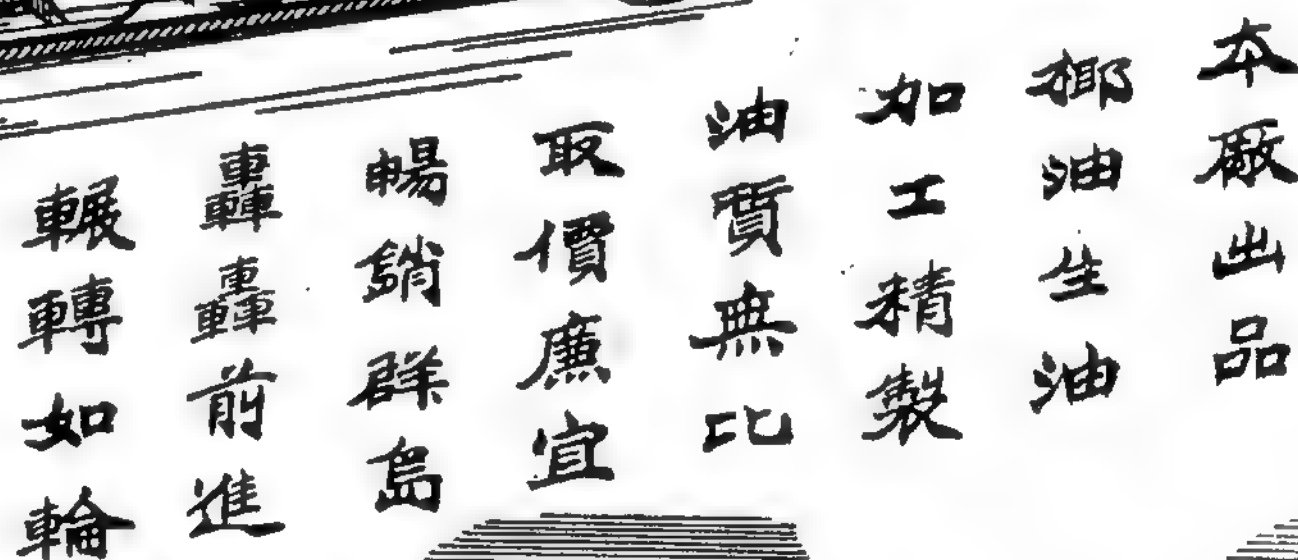 本廠出品
椰油生油
加工精製
油質無比
取價廉宜
暢銷群島
轟轟前進
輾轉如輪